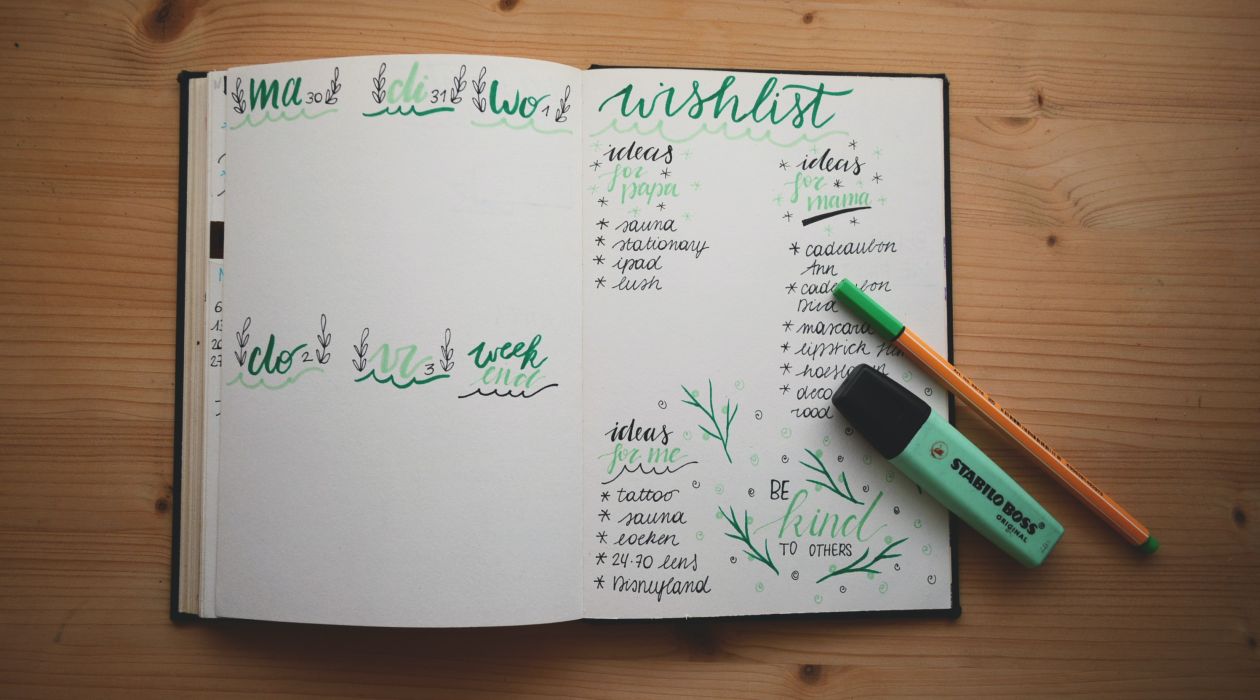 ma 30
di 31
wo 1
do 2
vr 3
week
end
6
13
20
27
wishlist
ideas
for
papa
* sauna
* stationary
* ipad
* lush
ideas
for
mama
* cadeaubon
Ann
* cadeaubon
* mascara
* lipstick
* deco
rood
ideas
for me
* tattoo
* sauna
* boeken
* 24-70 lens
* Disneyland
BE
kind
TO OTHERS
STABILO BOSS
ORIGINAL